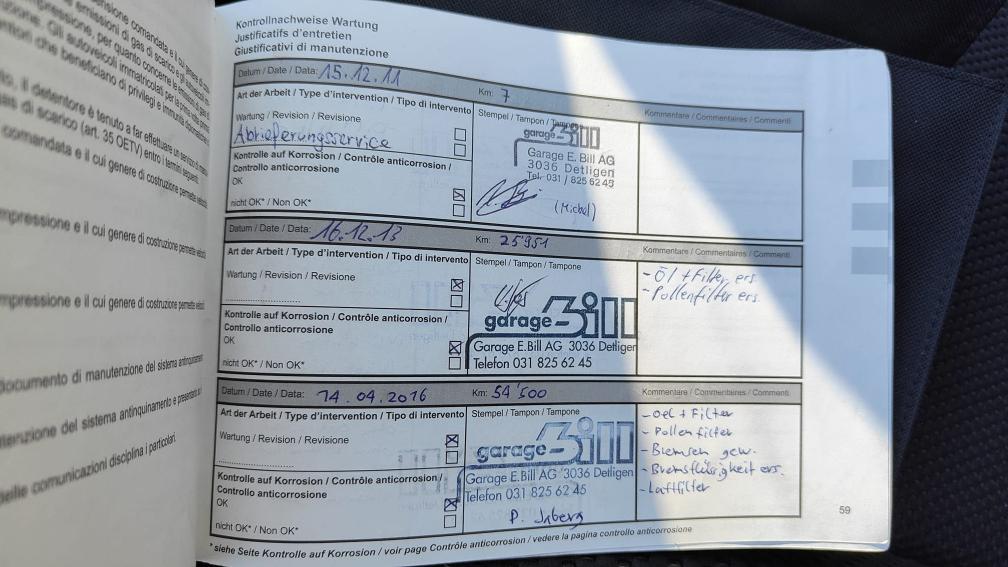 emissioni di gas di scarico
Gli autoveicoli immatricolati per la prima
che beneficiano di privilegi e immunità
il detentore è tenuto a far effettuare
di scarico (art. 35 OETV) entro i termini seguenti:
comandata e il cui genere di costruzione permette
mpressione e il cui genere di costruzione permette
mpressione e il cui genere di costruzione permette
documento di manutenzione del sistema antinquinamento
del sistema antinquinamento e presentarlo
comunicazioni disciplina i particolari.
Kontrollnachweise Wartung
Justificatifs d'entretien
Giustificativi di manutenzione
Datum / Date / Data: 15.12.11
Km: 7
Art der Arbeit / Type d'intervention / Tipo di intervento
Stempel / Tampon / Tampone
Kommentare / Commentaires / Commenti
Wartung / Revision / Revisione
Ablieferungsservice
Kontrolle auf Korrosion / Contrôle anticorrosion /
Controllo anticorrosione
OK
nicht OK* / Non OK*
garage Bill
Garage E. Bill AG
3036 Detligen
Tel. 031 / 825 62 45
(Michel)
Datum / Date / Data: 16.12.13
Km: 25'951
Art der Arbeit / Type d'intervention / Tipo di intervento
Stempel / Tampon / Tampone
Kommentare / Commentaires / Commenti
Wartung / Revision / Revisione
Kontrolle auf Korrosion / Contrôle anticorrosion /
Controllo anticorrosione
OK
nicht OK* / Non OK*
garage Bill
Garage E.Bill AG 3036 Detligen
Telefon 031 825 62 45
- Öl + Filter ers.
- Pollenfilter ers.
Datum / Date / Data: 14.04.2016
Km: 54'500
Art der Arbeit / Type d'intervention / Tipo di intervento
Stempel / Tampon / Tampone
Kommentare / Commentaires / Commenti
Wartung / Revision / Revisione
Kontrolle auf Korrosion / Contrôle anticorrosion /
Controllo anticorrosione
OK
nicht OK* / Non OK*
garage Bill
Garage E.Bill AG 3036 Detligen
Telefon 031 825 62 45
- Oel + Filter
- Pollenfilter
- Bremsen gew.
- Bremsflüssigkeit ers.
- Luftfilter
59
*siehe Seite Kontrolle auf Korrosion / voir page Contrôle anticorrosion / vedere la pagina controllo anticorrosione